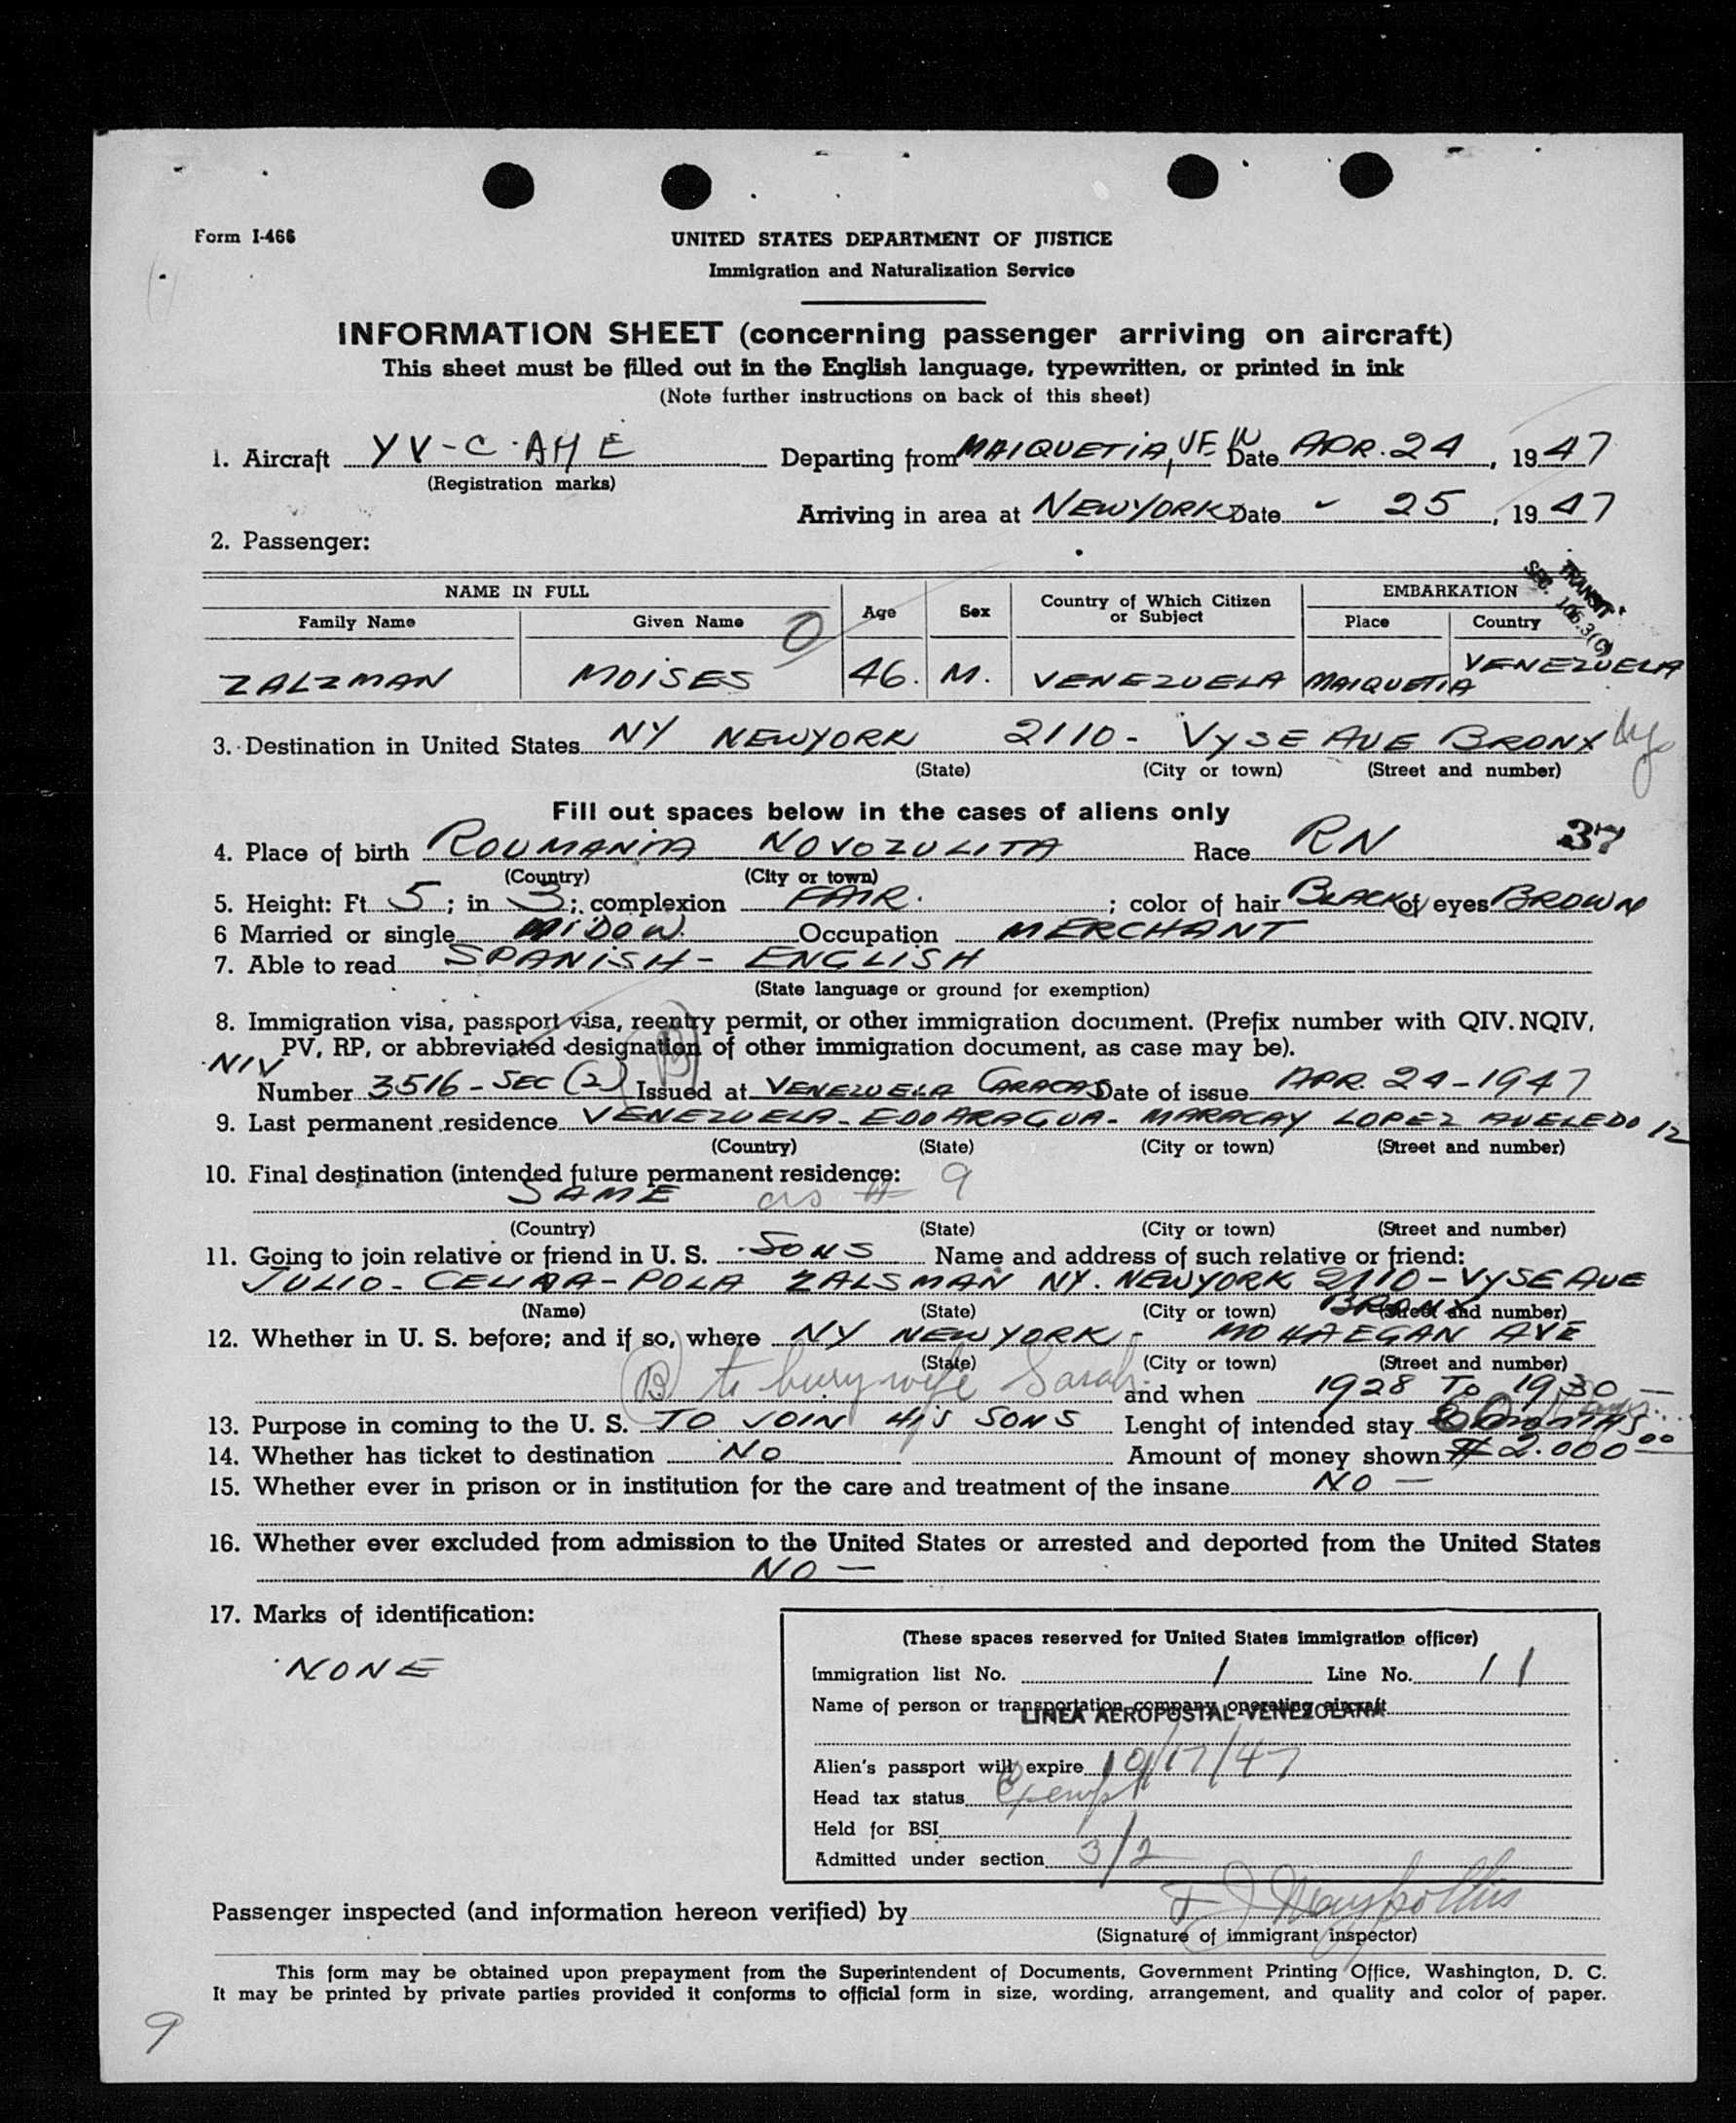 Form I-466
UNITED STATES DEPARTMENT OF JUSTICE
Immigration and Naturalization Service
INFORMATION SHEET (concerning passenger arriving on aircraft)
This sheet must be filled out in the English language, typewritten, or printed in ink
(Note further instructions on back of this sheet)
1. Aircraft YV-C-AME Departing from MAIQUETIA, VEN Date APR. 24, 1947
(Registration marks)
Arriving in area at NEWYORK Date 25, 1947
2. Passenger:
SEC. TRANSIT 106.3(C)
NAME IN FULL Age Sex Country of Which Citizen or Subject EMBARKATION
Family Name Given Name Place Country
0
ZALZMAN MOISES 46. M. VENEZUELA MAIQUETIA VENEZUELA
3. Destination in United States NY NEWYORK 2110- VYSE AVE BRONX Ny
(State) (City or town) (Street and number)
Fill out spaces below in the cases of aliens only
4. Place of birth ROUMANIA NOVOZULITA Race RN 37
(Country) (City or town)
5. Height: Ft 5; in 3; complexion FAIR.; color of hair BLACK of eyes BROWN
6 Married or single WIDOW. Occupation MERCHANT
7. Able to read SPANISH - ENGLISH
(State language or ground for exemption)
8. Immigration visa, passport visa, reentry permit, or other immigration document. (Prefix number with QIV. NQIV,
PV, RP, or abbreviated designation of other immigration document, as case may be).
NIV
Number 3516 - SEC (2) Issued at VENEZUELA CARACAS Date of issue APR. 24-1947
9. Last permanent residence VENEZUELA - EDO ARAGUA - MARACAY LOPEZ AVELEDO 12
(Country) (State) (City or town) (Street and number)
10. Final destination (intended future permanent residence:
SAME as # 9
(Country) (State) (City or town) (Street and number)
11. Going to join relative or friend in U. S. SONS Name and address of such relative or friend:
JULIO - - POLA ZALSMAN NY. NEWYORK 2110 - VYSE AVE
BRONX
(Name) (State) (City or town) (Street and number)
12. Whether in U. S. before; and if so, where NY NEWYORK - MOHAEGAN AVE
(State) (City or town) (Street and number)
(B) to bury wife Sarah and when 1928 TO 1930 -
13. Purpose in coming to the U. S. TO JOIN HIS SONS Lenght of intended stay 60 Days
14. Whether has ticket to destination NO Amount of money shown $ 2.000 00
15. Whether ever in prison or in institution for the care and treatment of the insane NO -
16. Whether ever excluded from admission to the United States or arrested and deported from the United States
NO -
17. Marks of identification:
NONE
(These spaces reserved for United States immigration officer)
Immigration list No. 1 Line No. 11
Name of person or transportation company operating aircraft
LINEA AEROPOSTAL VENEZOLANA
Alien's passport will expire 10/17/47
Head tax status Exempt
Held for BSI
Admitted under section 3/2
Passenger inspected (and information hereon verified) by
(Signature of immigrant inspector)
This form may be obtained upon prepayment from the Superintendent of Documents, Government Printing Office, Washington, D. C.
It may be printed by private parties provided it conforms to official form in size, wording, arrangement, and quality and color of paper.
9